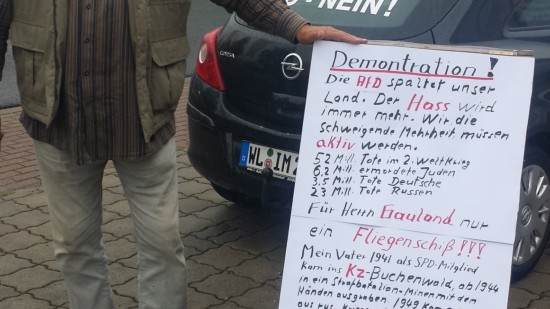 NEIN!
CORSA
WL IM 2
Demontration!
Die AfD spaltet unser
Land. Der Hass wird
immer mehr. Wir die
schweigende Mehrheit müssen
aktiv werden.
52 Mill. Tote im 2. Weltkrieg
6,2 Mill. ermordete Juden
3,5 Mill. Tote Deutsche
23 Mill. Tote Russen
Für Herrn Gauland nur
ein Fliegenschiß!!!
Mein Vater 1941 als SPD-Mitglied
kam ins Kz-Buchenwald, ab 1944
in ein Strafbatalion-Minen mit den
Händen ausgraben. 1949 kam
aus